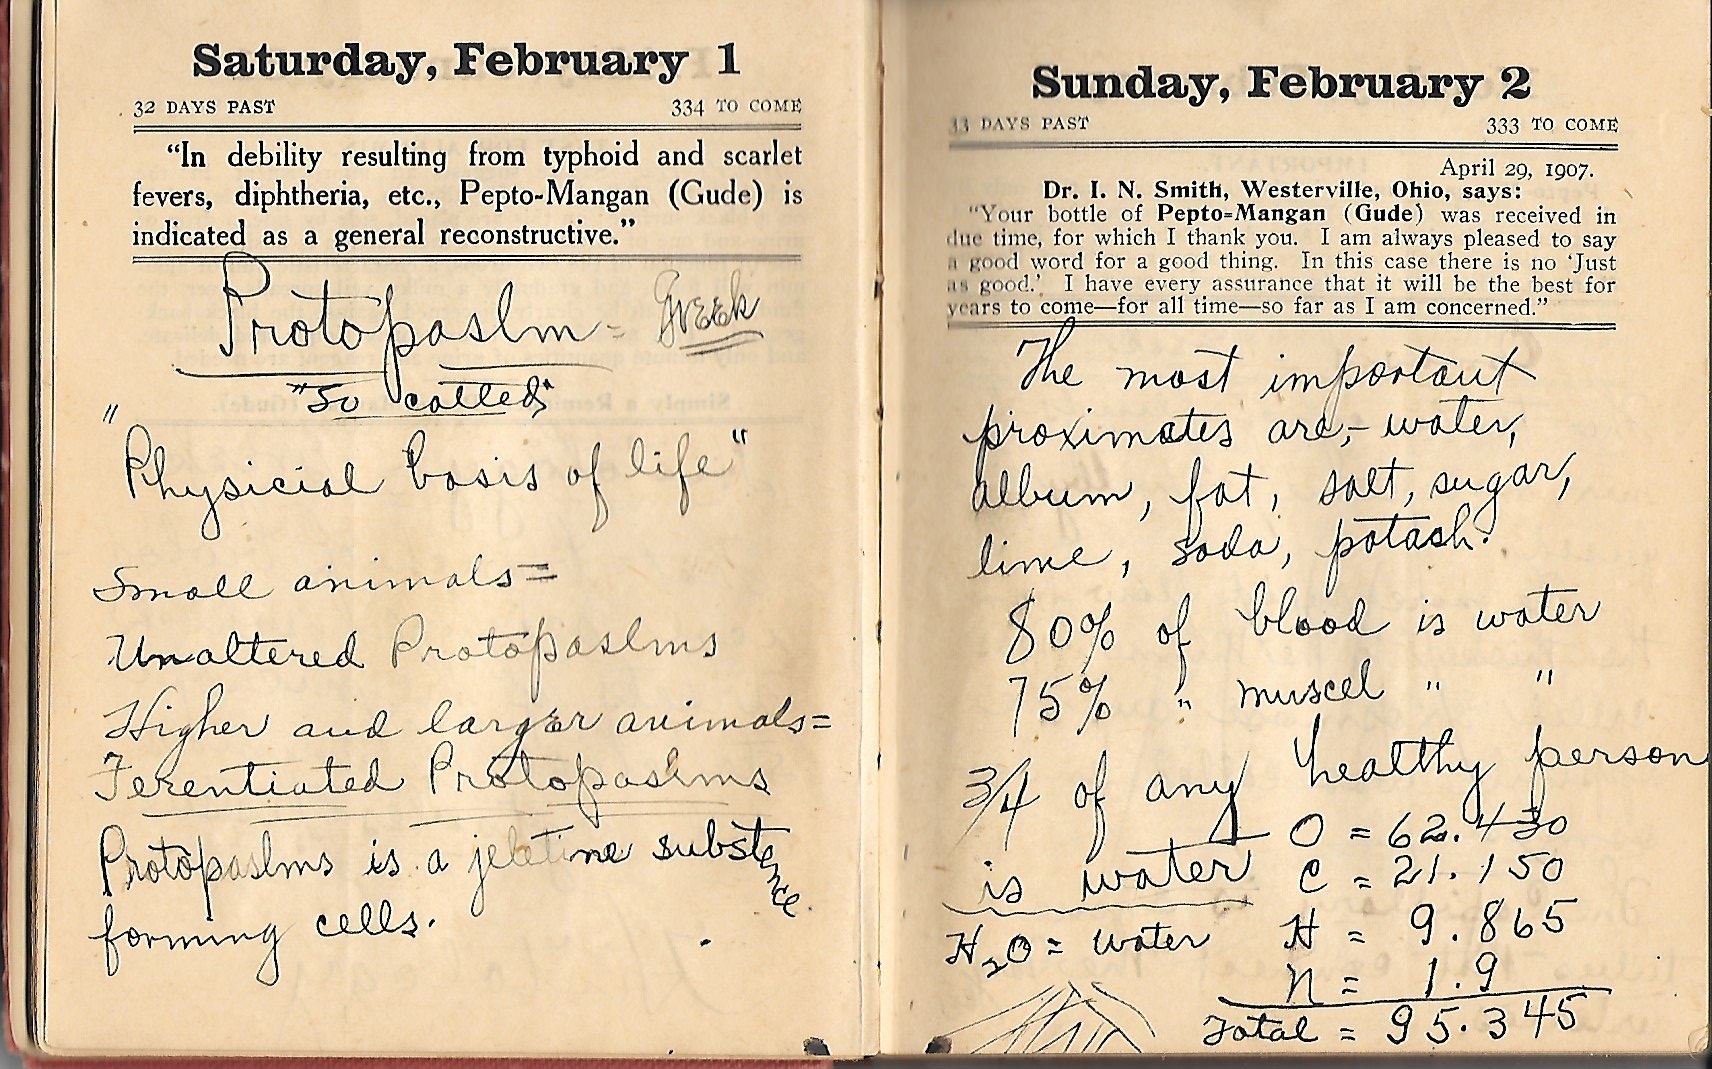 Saturday, February 1
32 DAYS PAST 334 TO COME
"In debility resulting from typhoid and scarlet
fevers, diphtheria, etc., Pepto-Mangan (Gude) is
indicated as a general reconstructive."
Protopaslm = Greek
"So called"
"Physicial basis of life"
Small animals =
Unaltered Protopaslms
Higher and larger animals =
Ferentiated Protopaslms
Protopaslms is a jeletine substence
forming cells.
Sunday, February 2
33 DAYS PAST 333 TO COME
April 29, 1907.
Dr. I. N. Smith, Westerville, Ohio, says:
"Your bottle of Pepto-Mangan (Gude) was received in
due time, for which I thank you. I am always pleased to say
a good word for a good thing. In this case there is no 'Just
as good.' I have every assurance that it will be the best for
years to come—for all time—so far as I am concerned."
The most important
proximates are,- water,
album, fat, salt, sugar,
lime, soda, potash.
80% of blood is water
75% " muscel " "
3/4 of any healthy person
is water
H2O = water
O = 62.430
C = 21.150
H = 9.865
N = 1.9
Total = 95.345